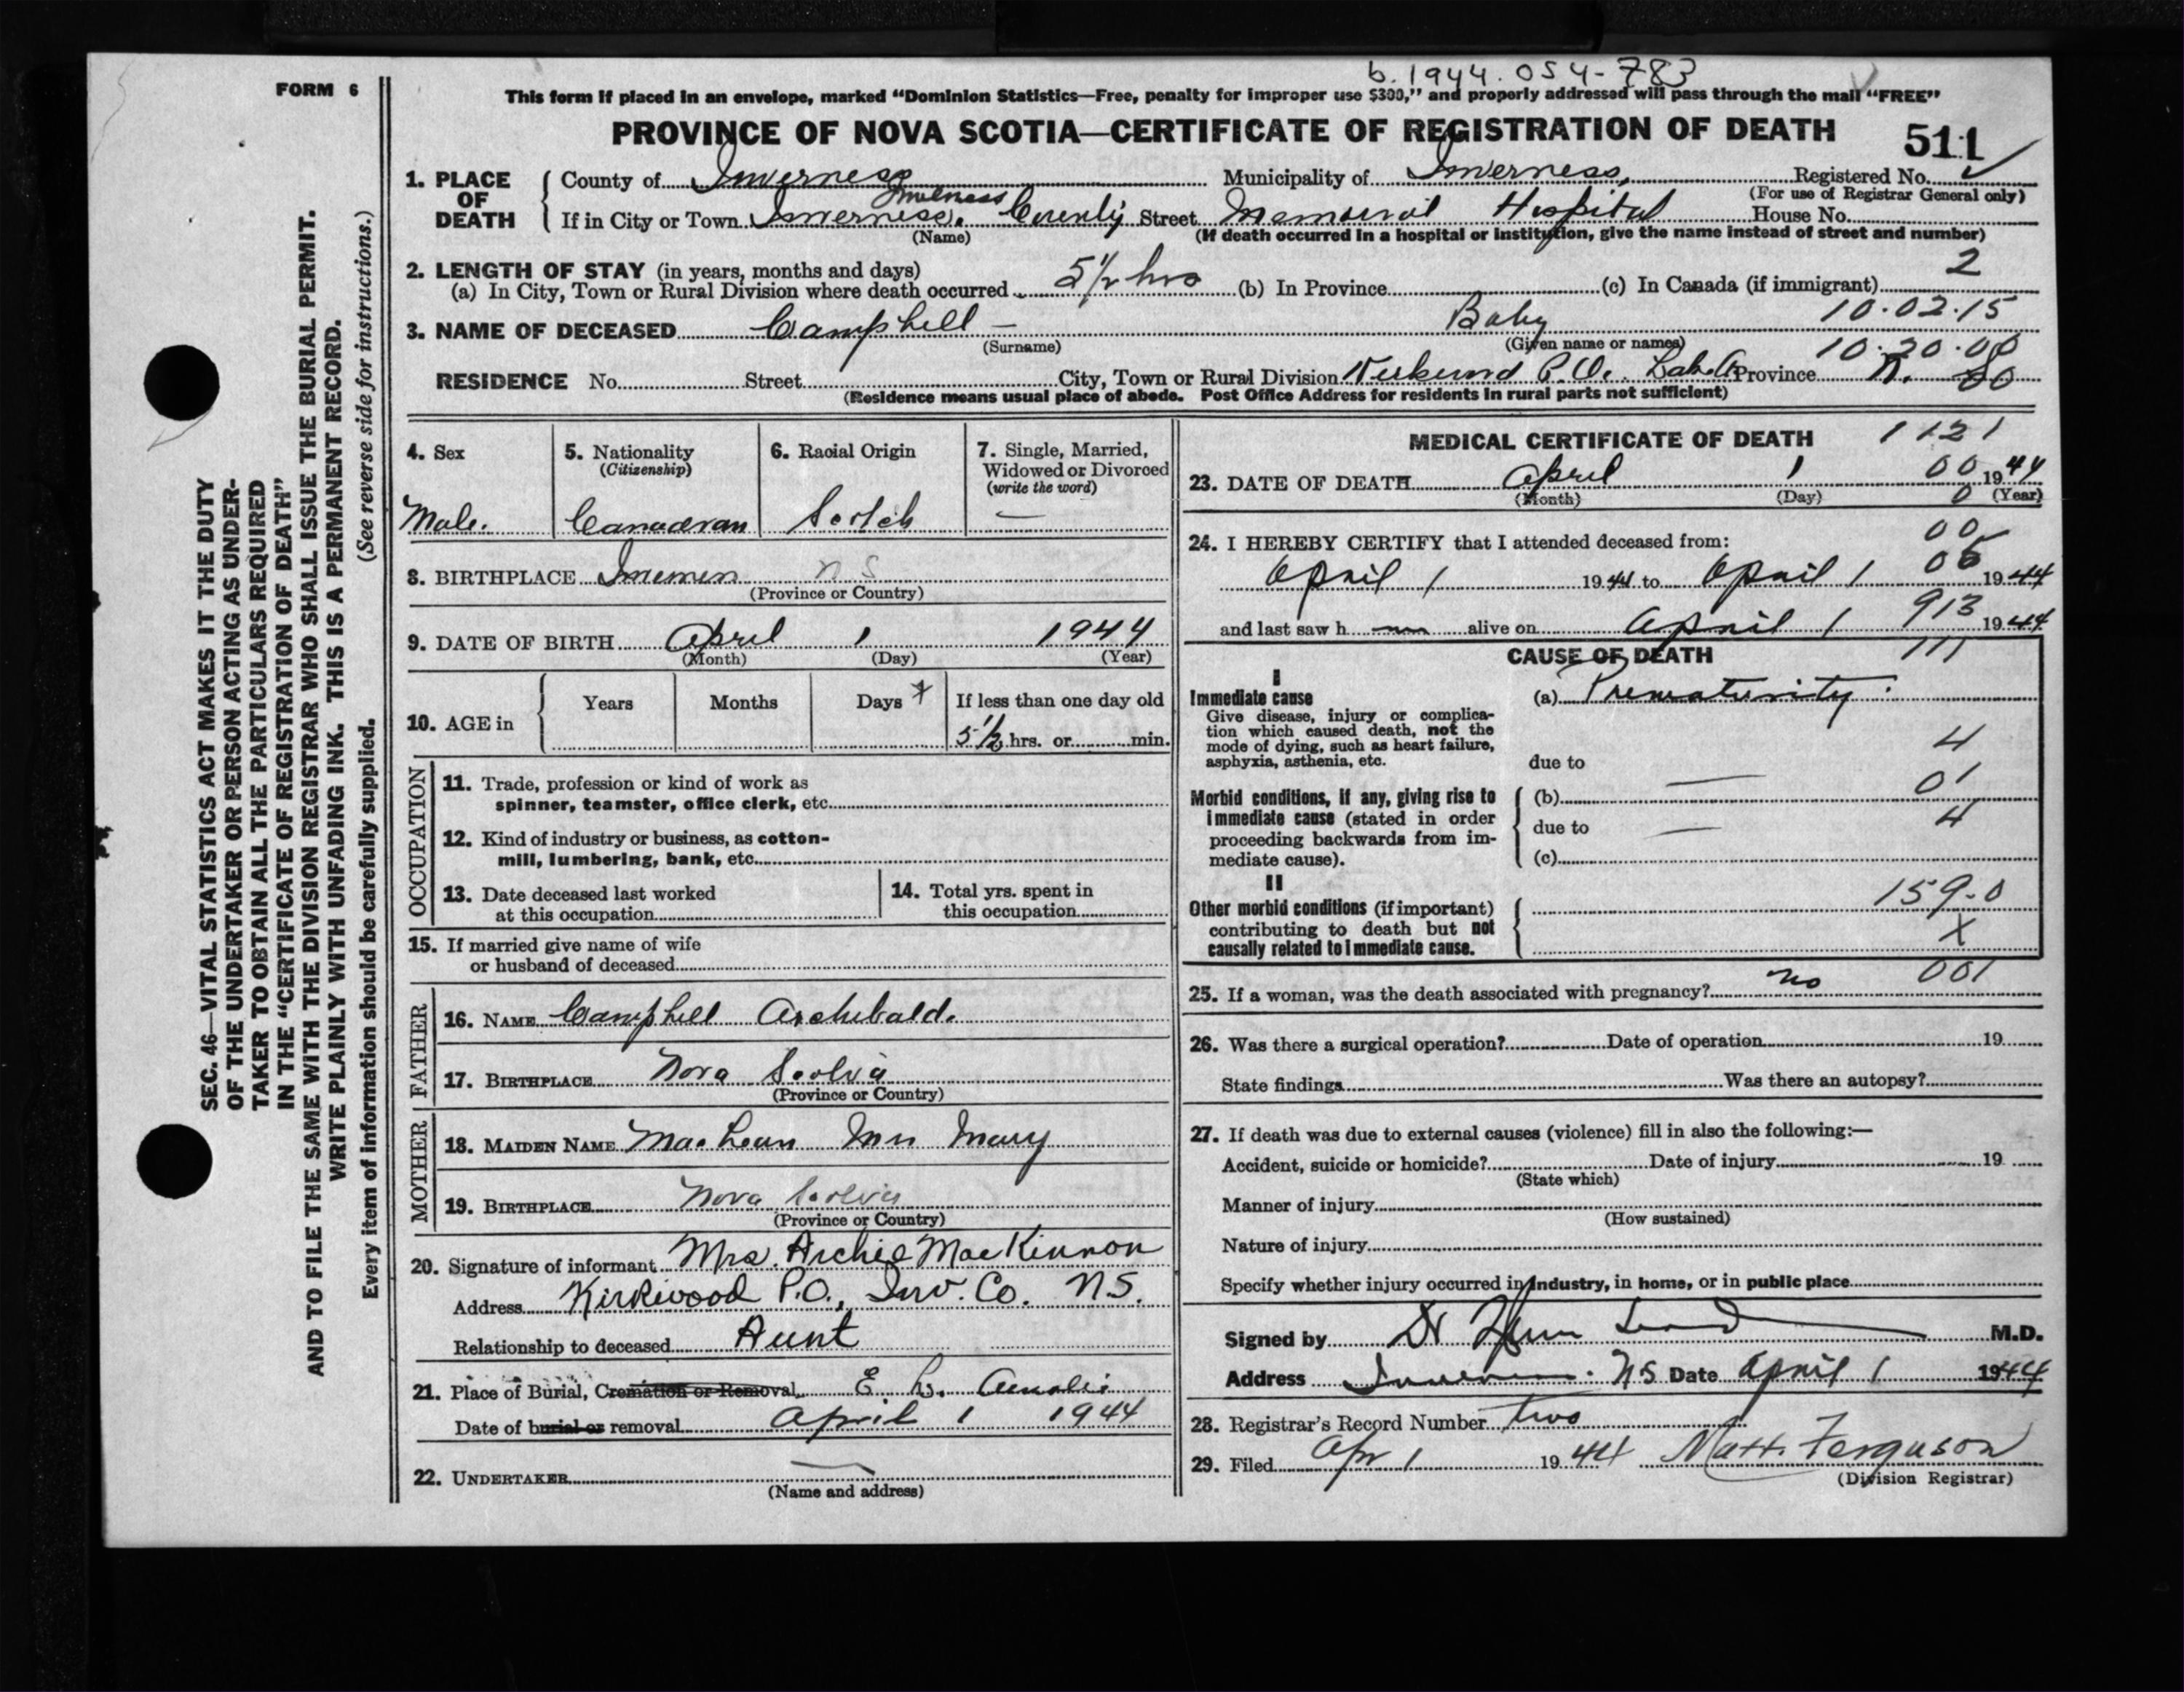 b. 1944. 054-783
FORM 6
This form if placed in an envelope, marked “Dominion Statistics—Free, penalty for improper use $300,” and properly addressed will pass through the mail “FREE”
PROVINCE OF NOVA SCOTIA—CERTIFICATE OF REGISTRATION OF DEATH
511
1. PLACE OF DEATH
County of Inverness Municipality of Inverness, Registered No.
(For use of Registrar General only)
If in City or Town Inverness. Inverness County Street Memorial Hospital House No.
(Name) (If death occurred in a hospital or institution, give the name instead of street and number)
2. LENGTH OF STAY (in years, months and days) 2
(a) In City, Town or Rural Division where death occurred 5½ hrs (b) In Province (c) In Canada (if immigrant)
3. NAME OF DECEASED Campbell — Baby 10.02.15
(Surname) (Given name or names) 10.20.00
RESIDENCE No. Street City, Town or Rural Division Kirkwood P.O. Province N.
(Residence means usual place of abode. Post Office Address for residents in rural parts not sufficient)
4. Sex
Male.
5. Nationality
(Citizenship)
Canadian
6. Racial Origin
Scotch
7. Single, Married,
Widowed or Divorced
(write the word)
—
8. BIRTHPLACE Inverness N S
(Province or Country)
9. DATE OF BIRTH April 1 1944
(Month) (Day) (Year)
10. AGE in
Years Months Days If less than one day old
5½ hrs. or min.
OCCUPATION
11. Trade, profession or kind of work as
spinner, teamster, office clerk, etc.
12. Kind of industry or business, as cotton-
mill, lumbering, bank, etc.
13. Date deceased last worked
at this occupation
14. Total yrs. spent in
this occupation
15. If married give name of wife
or husband of deceased
FATHER
16. NAME Campbell Archibald.
17. BIRTHPLACE Nova Scotia
(Province or Country)
MOTHER
18. MAIDEN NAME MacLean Mrs Mary
19. BIRTHPLACE Nova Scotia
(Province or Country)
20. Signature of informant Mrs. Archie MacKinnon
Address Kirkwood P.O., Inv. Co. N.S.
Relationship to deceased Aunt
21. Place of Burial, Cremation or Removal E. L. Ainslie
Date of burial or removal April 1 1944
22. UNDERTAKER —
(Name and address)
MEDICAL CERTIFICATE OF DEATH 1121
23. DATE OF DEATH April 1 00 1944
(Month) (Day) 0 (Year)
24. I HEREBY CERTIFY that I attended deceased from: 00
April 1 1944 to April 1 06 1944
and last saw h alive on April 1 913 1944
CAUSE OF DEATH 111
I
Immediate cause
Give disease, injury or complica-
tion which caused death, not the
mode of dying, such as heart failure,
asphyxia, asthenia, etc.
(a) Prematurity.
4
due to —
01
Morbid conditions, if any, giving rise to
immediate cause (stated in order
proceeding backwards from im-
mediate cause).
(b)
due to — 4
(c)
II
Other morbid conditions (if important)
contributing to death but not
causally related to immediate cause.
159.0
X
001
25. If a woman, was the death associated with pregnancy? no
26. Was there a surgical operation? Date of operation 19
State findings Was there an autopsy?
27. If death was due to external causes (violence) fill in also the following:—
Accident, suicide or homicide? Date of injury 19
(State which)
Manner of injury
(How sustained)
Nature of injury
Specify whether injury occurred in industry, in home, or in public place
Signed by M.D.
Address Inverness. N S Date April 1 1944
28. Registrar's Record Number two
29. Filed Apr 1 1944 Matt. Ferguson
(Division Registrar)
SEC. 46—VITAL STATISTICS ACT MAKES IT THE DUTY
OF THE UNDERTAKER OR PERSON ACTING AS UNDER-
TAKER TO OBTAIN ALL THE PARTICULARS REQUIRED
IN THE “CERTIFICATE OF REGISTRATION OF DEATH”
AND TO FILE THE SAME WITH THE DIVISION REGISTRAR WHO SHALL ISSUE THE BURIAL PERMIT.
WRITE PLAINLY WITH UNFADING INK. THIS IS A PERMANENT RECORD.
(See reverse side for instructions.)
Every item of information should be carefully supplied.